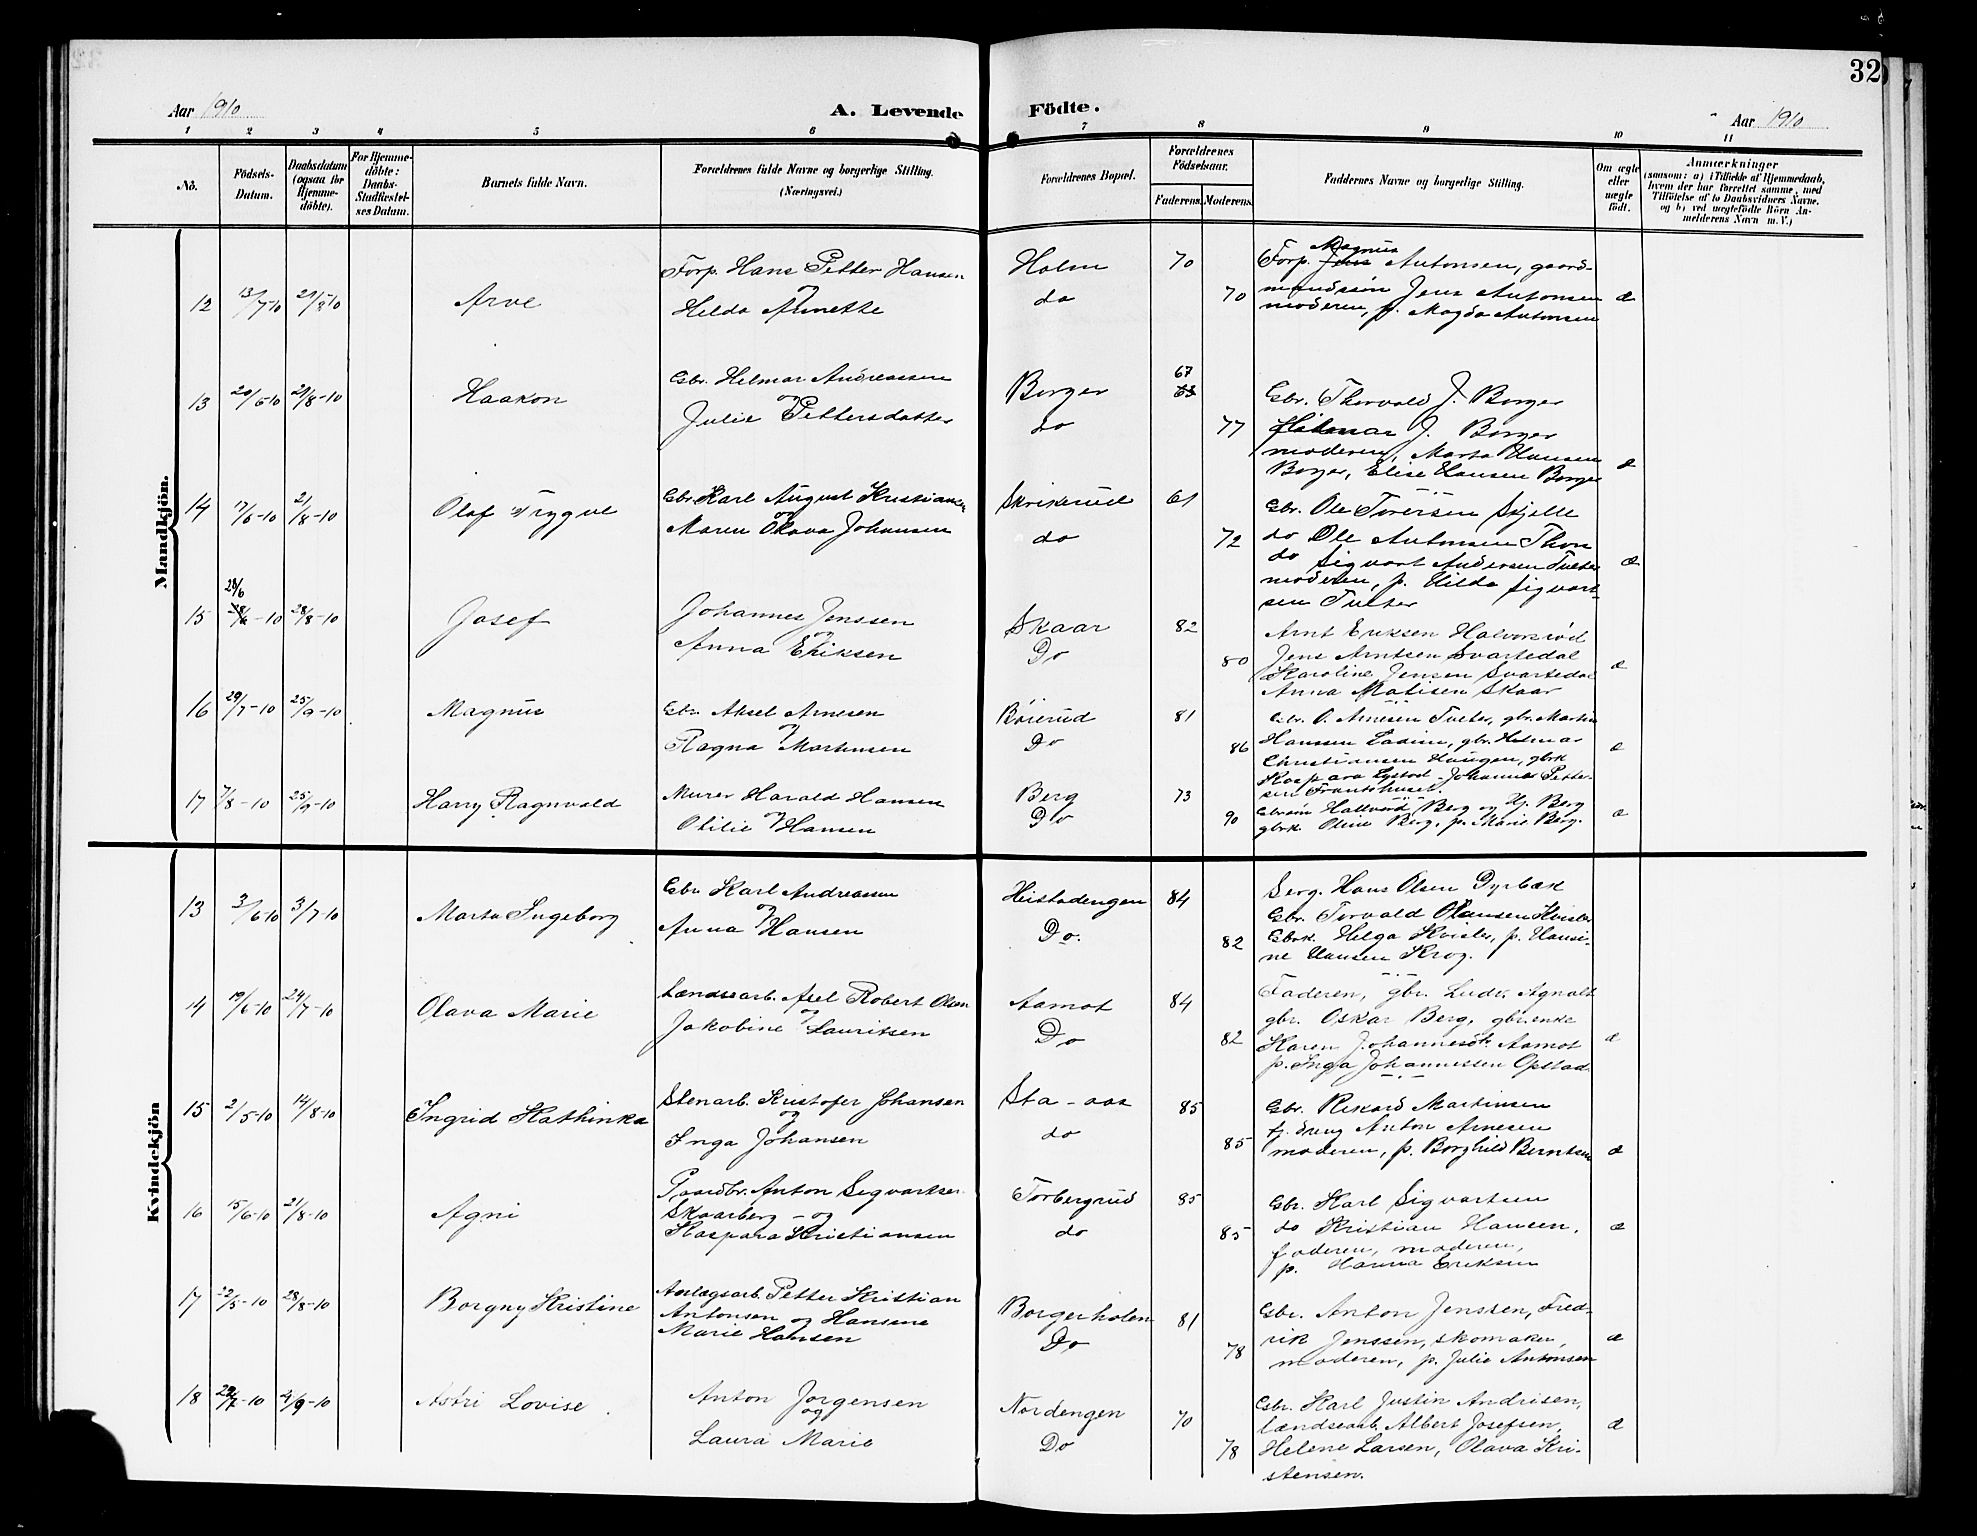 32
Aar 1910 A. Levende Födte. Aar 1910
1 2 3 4 5 6 7 8 9 10 11
No. Födsels-Datum. Daabsdatum (ogsaa for Hjemme-döbte). For Hjemme-döbte: Daabs-Stadfæstel-ses Datum. Barnets fulde Navn. Forældrenes fulde Navne og borgerlige Stilling. (Næringsvei.) Forældrenes Bopæl. Forældrenes Födselsaar. Faderens. Moderens. Faddernes Navne og borgerlige Stilling. Om ægte eller uægte födt. Anmærkninger (saasom: a) i Tilfælde af Hjemmedaab, hvem der har forrettet samme, med Tilföielse af to Daabsvidners Navne. og b) ved uægtefödte Börn An-melderens Navn m. V.)
Mandkjön.
12 13/7-10 Arve
Forp. Hans Petter Hansen
og
Hilda Annette
Holm
do
70
70
Forp. Magnus Antonsen, gaard-
mandssön Jens Antonsen
moderen, p. Magda Antonsen
æ
13 20/6-10 21/8-10 Haakon
Gbr. Helmar Andreassen
og
Julie Pettersdatter
Borger
do
67
63
77
Gbr. Thorvald J. Borger
J. Borger
moderen, Marta Hansen
Borger, Elise Hansen Borger
æ
14 17/6-10 21/8-10 Olaf Trygve
Gbr. Karl August Kristiansen
og
Maren Olava Johansen
Skriserud
do
61
72
Gbr. Ole Torersen Skjelle
do Ole Antonsen Thon
do Sigvart Andersen Tveter
moderen, p. Hilda Sigvart-
sen Tveter
æ
15 28/6 -10 28/8-10 Josef
Johannes Jenssen
og
Anna Eriksen
Skaar
Do
82
80
Arnt Eriksen Halvorsröd
Jens Arntsen Svartedal
Karoline Jensen Svartedal
Anna Matisen Skaar
æ
16 29/7-10 25/9-10 Magnus
Gbr. Aksel Arnesen
og
Ragna Martinsen
Böierud
Do
81
86
Gbr. O. Arnesen Tveter, gbr. Martin
Hansen Ladim, gbr. Helmar
Christiansen Haugen, gbrk
Kaspara Lystad - Johannes Petter-
sen
æ
17 7/8-10 25/9-10 Harry Ragnvald
Murer Harald Hansen
og
Otilie Hansen
Berg
Do
73
90
Gbrsön Hallvard Berg og Hj. Berg
gbrk Oline Berg, p. Marie Berg.
æ
Kvindekjön
13 3/6-10 3/7-10 Marta Ingeborg
Gbr Karl Andreassen
og
Anna Hansen
Heistadengen
Do.
84
82
Serg. Hans Olsen Dyrbæk
Gbr. Torvald Olausen Kvisler
Gbrk. Helga Kvisler, p. Hansi-
ne Hansen Krog.
14 19/6-10 24/7-10 Olava Marie
Lændsearb. Axel Robert Olsen
og
Jakobine Lauritsen
Aamot
Do
84
82
Faderen, gbr. Ludv. Agnalt
gbr. Oskar Berg, gbr.enke
Karen Johannesdt. Aamot
p. Inga Johannessen Opstad
æ
15 2/5-10 14/8-10 Ingrid Kathinka
Stenarb. Kristofer Johansen
og
Inga Johansen
Sta-aas
do
85
85
Gbr. Rikard Martinsen
tj. dreng Anton Arnesen
moderen, p. Borghild Berntsen
æ
16 15/6-10 21/8-10 Agni
Gaardbr. Anton Sigvartsen
Skaarberg - og
Kaspara Kristiansen
Torbergrud
do
85
85
Gbr. Karl Sigvartsen
do Kristian Hansen,
faderen, moderen,
p. Hanna Eriksen
æ
17 22/5-10 28/8-10 Borgny Kristine
Anlægsarb. Petter Kristian
Antonsen og Hansine
Marie Hansen
Borgerholen
Do
81
78
Gbr. Anton Jenssen, Fred-
rik Jenssen, skomaker,
moderen, p. Julie Antonsen
æ
18 29/7-10 4/9-10 Astri Lovise
Anton Jorgensen
og
Laura Marie
Nordengen
Do
70
78
Gbr. Karl Justin Andrisen,
lændsearb. Albert Josefsen,
Helene Larsen, Olava Kri-
stensen.
æ